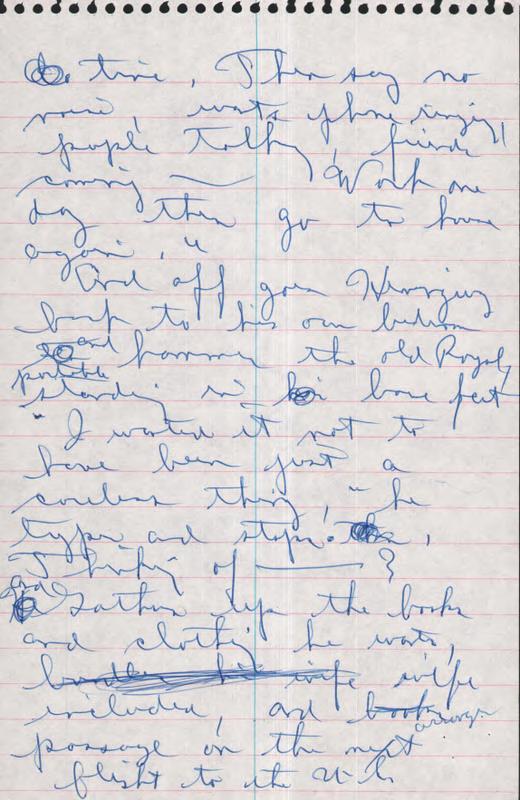 time, Then say no
noise, wants phone ringing,
people talking, friends
coming — Work one
day then go to house
again."
And off goes Hemingway
back to his own bedroom
and hammer the old Royal,
portable
standing in his bare feet
"I wanted it not to
have been just a
careless thing," he
types and stops.
Thinking of — ?
and Gathers up the books
and clothing he wants,
wife wife
included, and books
arrange
passage on the next
flight to the U.S.